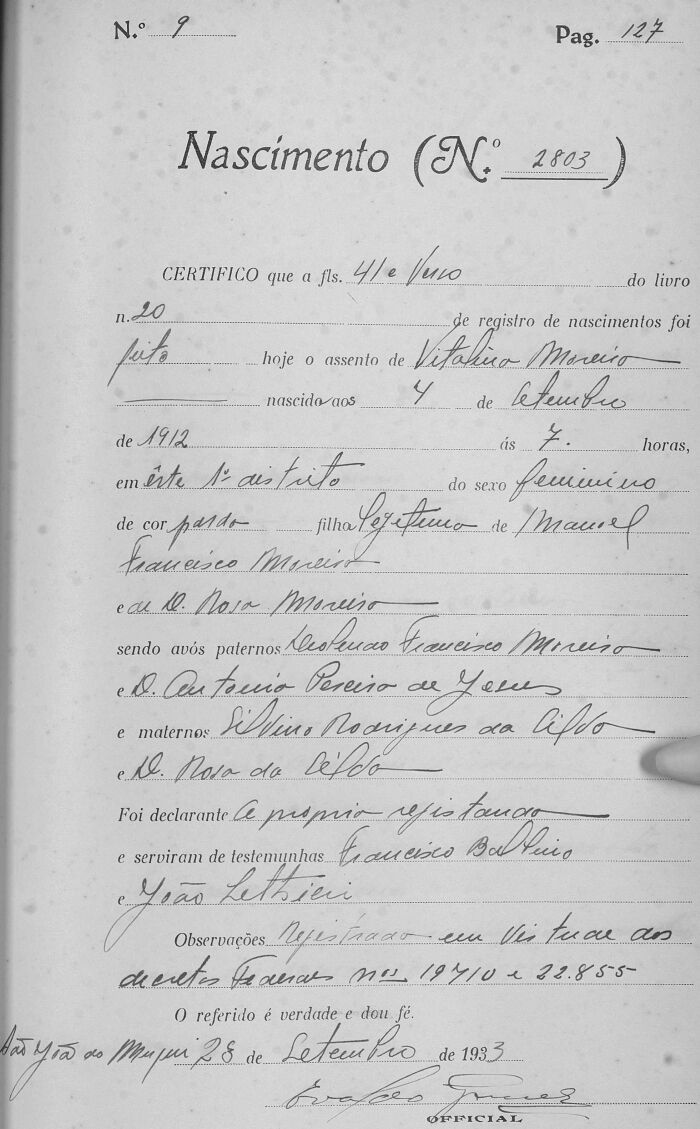 N.º 9 Pag. 127
Nascimento (N.º 2803)
CERTIFICO que a fls. 41 e Verso do livro
n. 20 de registro de nascimentos foi
feito hoje o assento de Vitalina Moreira
nascida aos 4 de Setembro
de 1912 ás 7. horas,
em êste 1º distrito do sexo feminino
de cor parda filha legitima de Manoel
Francisco Moreira
e de D. Rosa Moreira
sendo avós paternos Francisco Moreira
e D. Antonia Pereira de Jesus
e maternos Silvino Rodrigues da Silva
e D. Rosa da Silva
Foi declarante a propria registanda
e serviram de testemunhas Francisco Balbino
e João
Observações Registrado em Virtude dos
decretos Federaes nos 19710 e 22.855
O referido é verdade e dou fé.
São João do Muqui 28 de Setembro de 1933
Evaldo Gomes
OFFICIAL